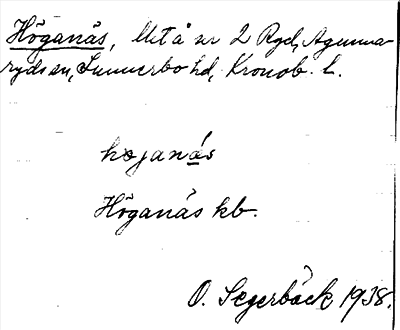 Höganäs, Uet å nr 2 Ryd, Agunna-
ryds sn, Sunnerbo hd, Kronob. l.
hөjanás
Höganäs kb.
O. Segerbäck 1938.